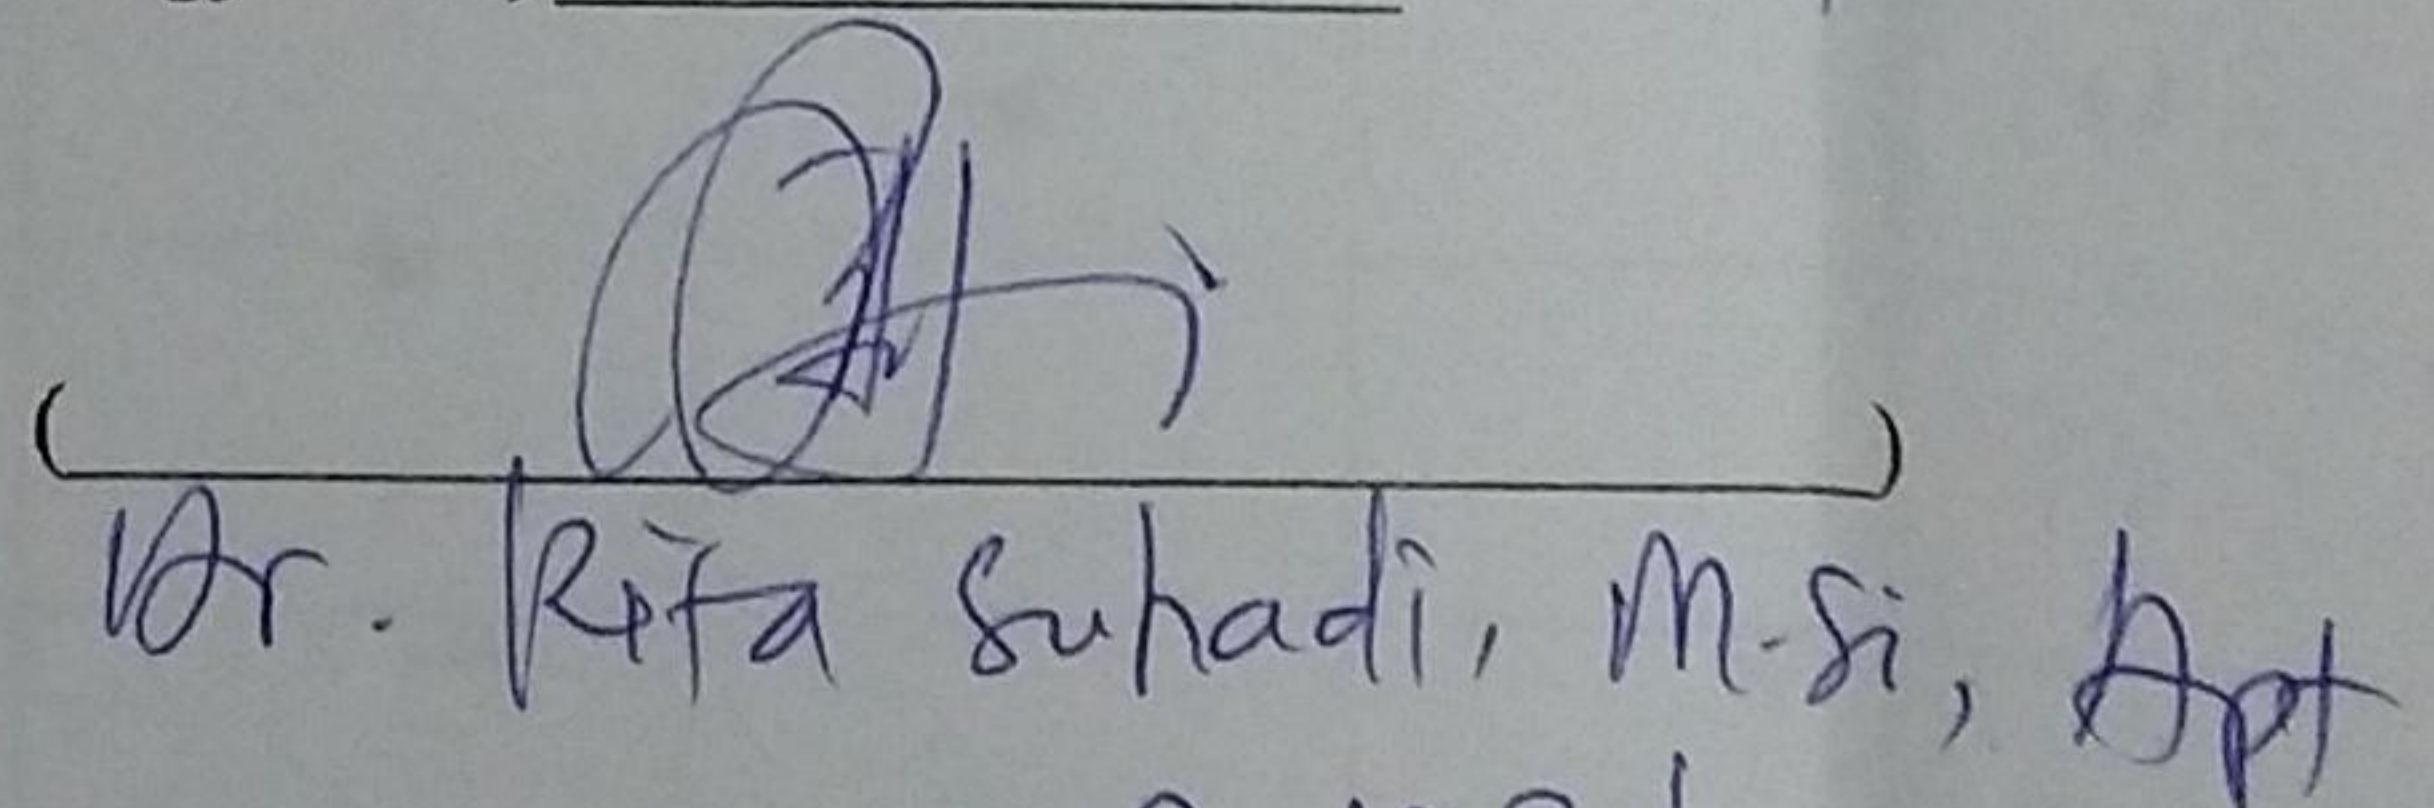 Dr. Rita Suhadi, M.Si, Apt